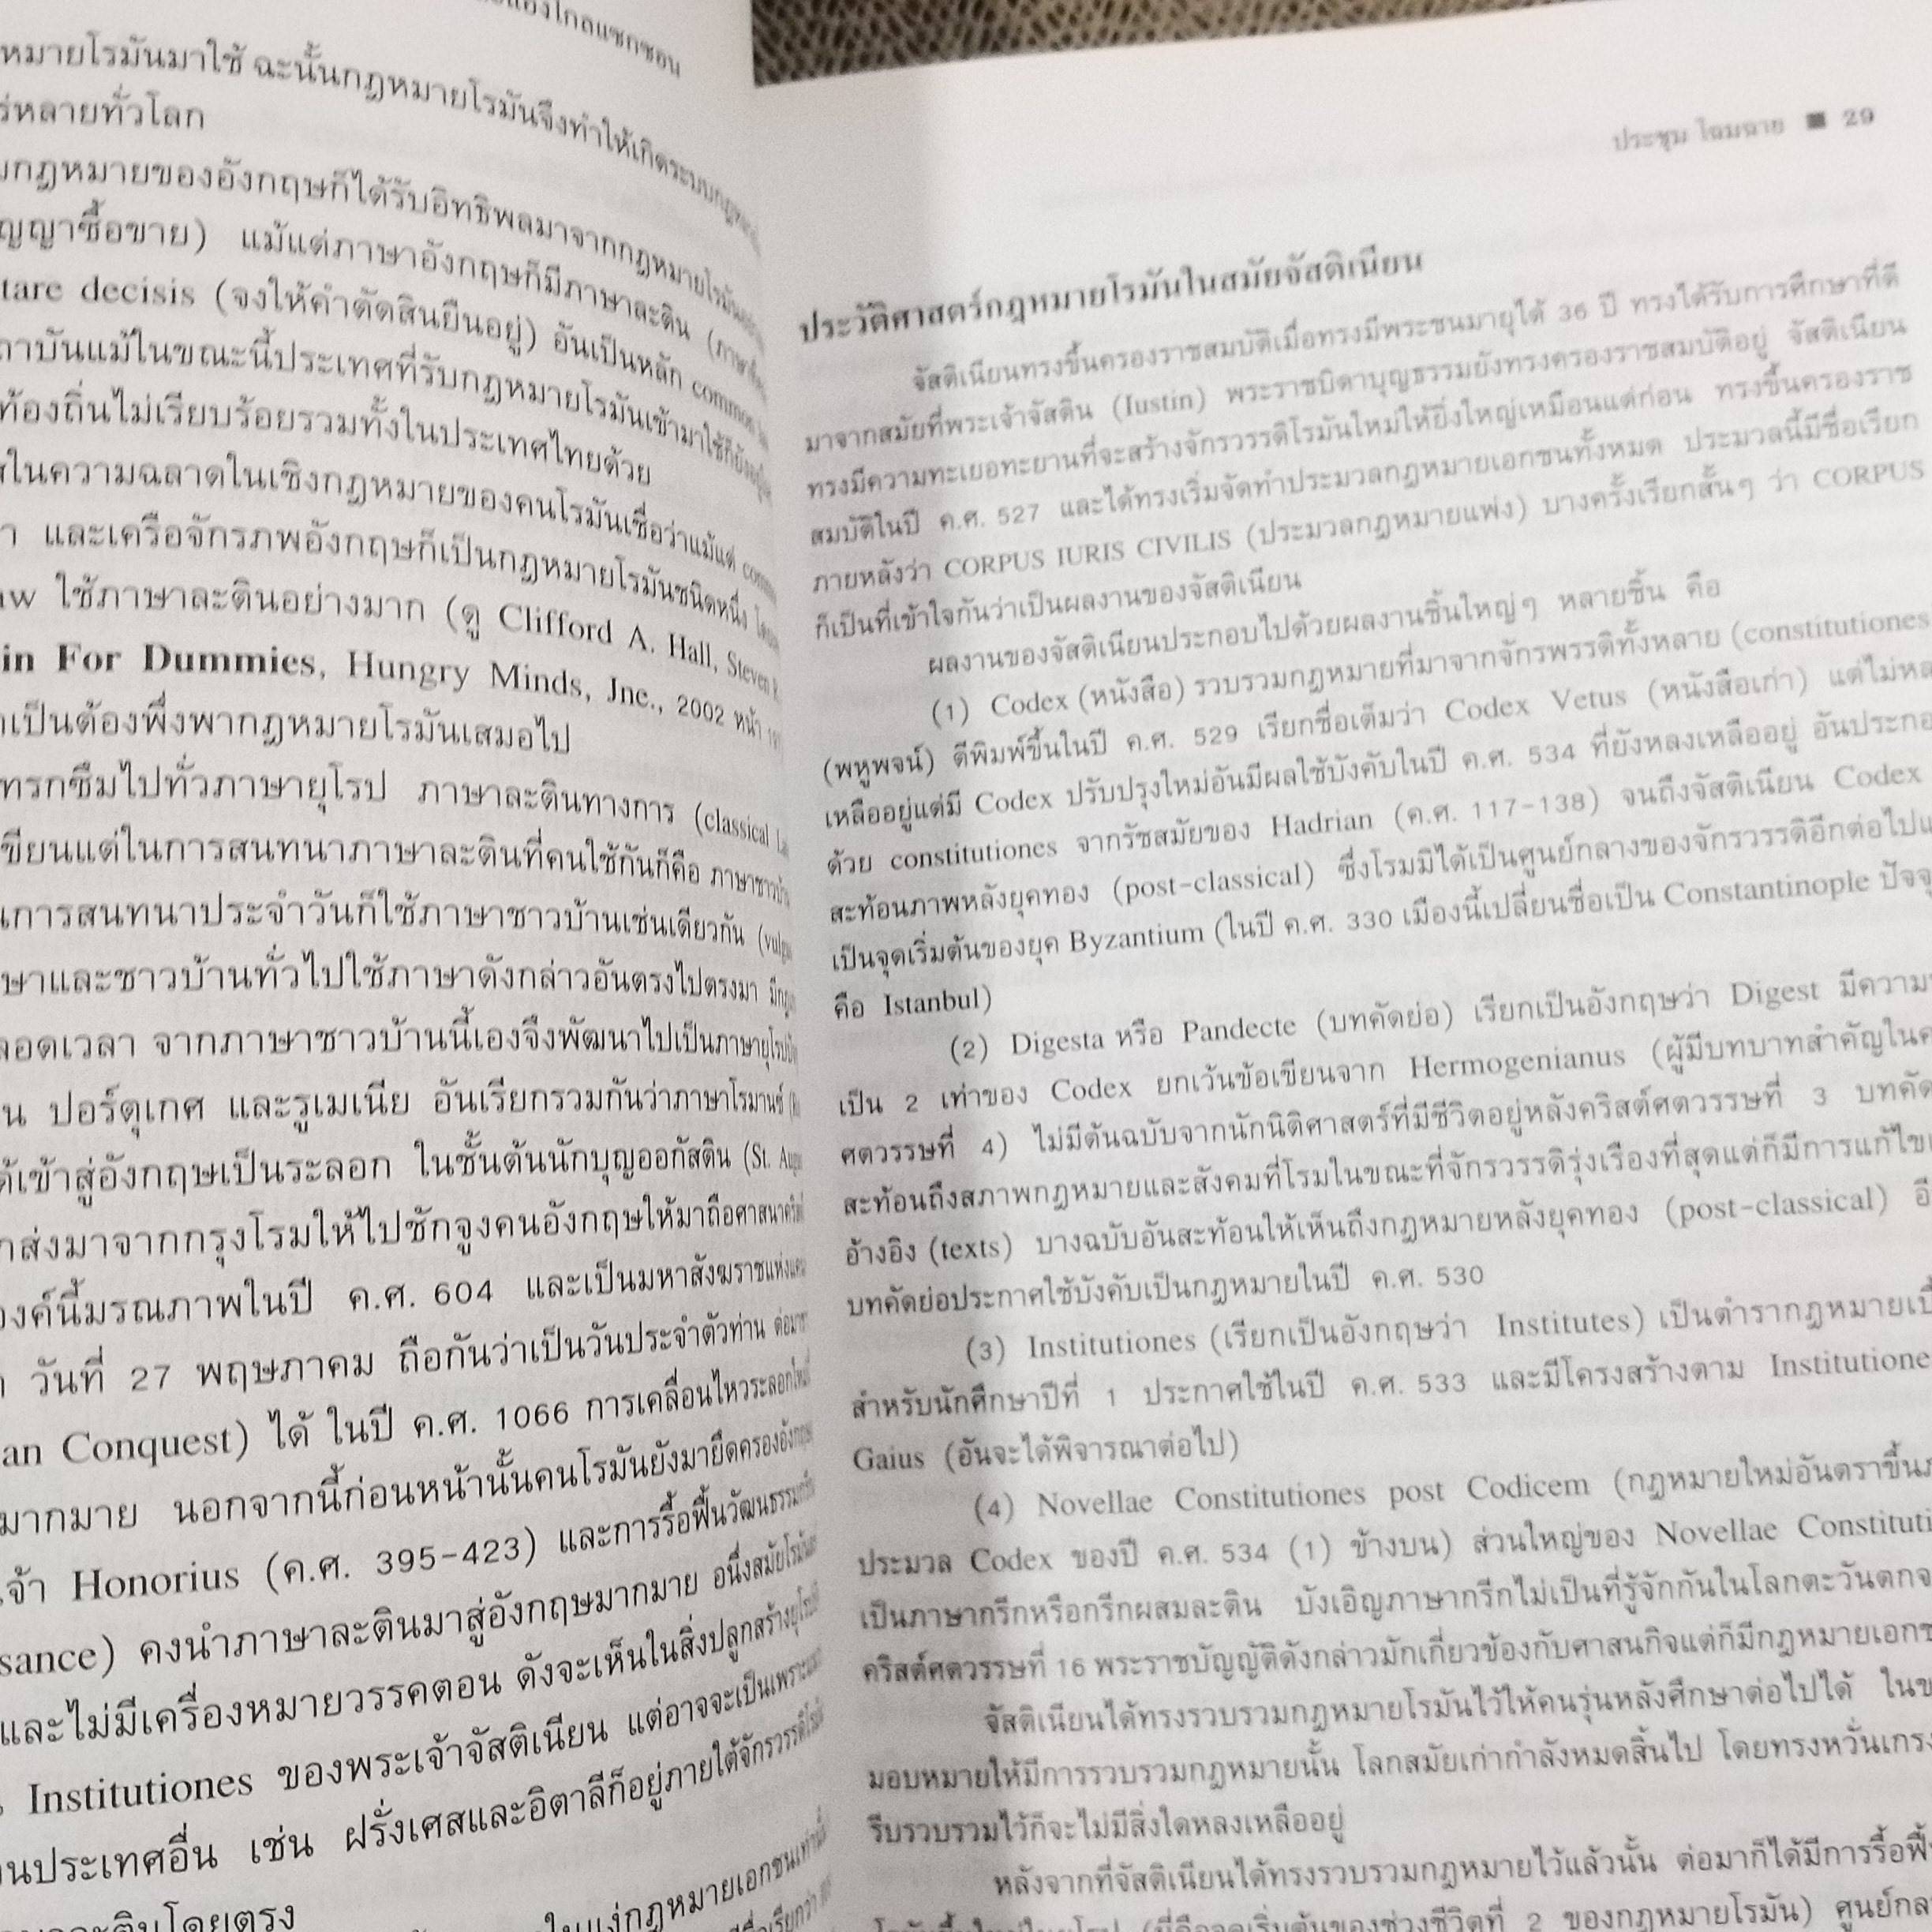 หมายโรมันมาใช้ ฉะนั้นกฎหมายโรมันจึงทำให้เกิดระบบ
หลายทั่วโลก
กฎหมายของอังกฤษก็ได้รับอิทธิพลมาจากกฎหมายโรมัน
ซื้อขาย) แม้แต่ภาษาอังกฤษก็มีภาษาละติน
tare decisis (จงให้คำตัดสินยืนอยู่) อันเป็นหลัก common
แม้ในขณะนี้ประเทศที่รับกฎหมายโรมันเข้ามาใช้ก็ยัง
ท้องถิ่นไม่เรียบร้อยรวมทั้งในประเทศไทยด้วย
ในความฉลาดในเชิงกฎหมายของคนโรมันเชื่อว่าแม้แต่
และเครือจักรภพอังกฤษก็เป็นกฎหมายโรมันชนิดหนึ่ง
ใช้ภาษาละตินอย่างมาก (ดู Clifford A. Hall, Steven
in For Dummies, Hungry Minds, Jnc., 2002 หน้า
เป็นต้องพึ่งพากฎหมายโรมันเสมอไป
แทรกซึมไปทั่วภาษายุโรป ภาษาละตินทางการ (classical
เขียนแต่ในการสนทนาภาษาละตินที่คนใช้กันก็คือ
การสนทนาประจำวันก็ใช้ภาษาชาวบ้านเช่นเดียวกัน
และชาวบ้านทั่วไปใช้ภาษาดังกล่าวอันตรงไปตรงมา
ลอดเวลา จากภาษาชาวบ้านนี้เองจึงพัฒนาไปเป็น
ปอร์ตุเกศ และรูเมเนีย อันเรียกรวมกันว่าภาษาโรมานซ์
เข้าสู่อังกฤษเป็นระลอก ในชั้นต้นนักบุญออกัสติน (St.
ส่งมาจากกรุงโรมให้ไปชักจูงคนอังกฤษให้มาถือศาสนา
องค์นี้มรณภาพในปี ค.ศ. 604 และเป็นมหาสังฆราช
วันที่ 27 พฤษภาคม ถือกันว่าเป็นวันประจำตัวท่าน
an Conquest) ได้ ในปี ค.ศ. 1066 การเคลื่อนไหวระลอก
มากมาย นอกจากนี้ก่อนหน้านั้นคนโรมันยังมายึดครอง
เจ้า Honorius (ค.ศ. 395-423) และการรื้อฟื้นวัฒนธรรม
sance) คงนำภาษาละตินมาสู่อังกฤษมากมาย อนึ่งสมัย
และไม่มีเครื่องหมายวรรคตอน ดังจะเห็นในสิ่งปลูกสร้าง
Institutiones ของพระเจ้าจัสติเนียน แต่อาจจะเป็นเพราะ
ประเทศอื่น เช่น ฝรั่งเศสและอิตาลีก็อยู่ภายใต้จักรวรรดิ
โดยตรง
กฎหมายเอกชนเท่านั้น
ประชุม โฉมฉาย ■ 29
ประวัติศาสตร์กฎหมายโรมันในสมัยจัสติเนียน
จัสติเนียนทรงขึ้นครองราชสมบัติเมื่อทรงมีพระชนมายุได้ 36 ปี ทรงได้รับการศึกษาที่ดี
มาจากสมัยที่พระเจ้าจัสติน (Iustin) พระราชบิดาบุญธรรมยังทรงครองราชสมบัติอยู่ จัสติเนียน
ทรงมีความทะเยอทะยานที่จะสร้างจักรวรรดิโรมันใหม่ให้ยิ่งใหญ่เหมือนแต่ก่อน ทรงขึ้นครองราช
สมบัติในปี ค.ศ. 527 และได้ทรงเริ่มจัดทำประมวลกฎหมายเอกชนทั้งหมด ประมวลนี้มีชื่อเรียก
ภายหลังว่า CORPUS IURIS CIVILIS (ประมวลกฎหมายแพ่ง) บางครั้งเรียกสั้นๆ ว่า CORPUS
ก็เป็นที่เข้าใจกันว่าเป็นผลงานของจัสติเนียน
ผลงานของจัสติเนียนประกอบไปด้วยผลงานชิ้นใหญ่ๆ หลายชิ้น คือ
(1) Codex (หนังสือ) รวบรวมกฎหมายที่มาจากจักรพรรดิทั้งหลาย (constitutiones
(พหูพจน์) ตีพิมพ์ขึ้นในปี ค.ศ. 529 เรียกชื่อเต็มว่า Codex Vetus (หนังสือเก่า) แต่ไม่
เหลืออยู่แต่มี Codex ปรับปรุงใหม่อันมีผลใช้บังคับในปี ค.ศ. 534 ที่ยังหลงเหลืออยู่ อันประกอ
ด้วย constitutiones จากรัชสมัยของ Hadrian (ค.ศ. 117-138) จนถึงจัสติเนียน Codex
สะท้อนภาพหลังยุคทอง (post-classical) ซึ่งโรมมิได้เป็นศูนย์กลางของจักรวรรดิอีกต่อไป
เป็นจุดเริ่มต้นของยุค Byzantium (ในปี ค.ศ. 330 เมืองนี้เปลี่ยนชื่อเป็น Constantinople ปัจจุ
คือ Istanbul)
(2) Digesta หรือ Pandecte (บทคัดย่อ) เรียกเป็นอังกฤษว่า Digest มีความ
เป็น 2 เท่าของ Codex ยกเว้นข้อเขียนจาก Hermogenianus (ผู้มีบทบาทสำคัญใน
ศตวรรษที่ 4) ไม่มีต้นฉบับจากนักนิติศาสตร์ที่มีชีวิตอยู่หลังคริสต์ศตวรรษที่ 3 บทคัด
สะท้อนถึงสภาพกฎหมายและสังคมที่โรมในขณะที่จักรวรรดิรุ่งเรืองที่สุดแต่ก็มีการแก้ไข
อ้างอิง (texts) บางฉบับอันสะท้อนให้เห็นถึงกฎหมายหลังยุคทอง (post-classical)
บทคัดย่อประกาศใช้บังคับเป็นกฎหมายในปี ค.ศ. 530
(3) Institutiones (เรียกเป็นอังกฤษว่า Institutes) เป็นตำรากฎหมาย
สำหรับนักศึกษาปีที่ 1 ประกาศใช้ในปี ค.ศ. 533 และมีโครงสร้างตาม Institutione
Gaius (อันจะได้พิจารณาต่อไป)
(4) Novellae Constitutiones post Codicem (กฎหมายใหม่อันตราขึ้น
ประมวล Codex ของปี ค.ศ. 534 (1) ข้างบน) ส่วนใหญ่ของ Novellae Constituti
เป็นภาษากรีกหรือกรีกผสมละติน บังเอิญภาษากรีกไม่เป็นที่รู้จักกันในโลกตะวันตก
คริสต์ศตวรรษที่ 16 พระราชบัญญัติดังกล่าวมักเกี่ยวข้องกับศาสนกิจแต่ก็มีกฎหมายเอกช
จัสติเนียนได้ทรงรวบรวมกฎหมายโรมันไว้ให้คนรุ่นหลังศึกษาต่อไปได้ ใน
มอบหมายให้มีการรวบรวมกฎหมายนั้น โลกสมัยเก่ากำลังหมดสิ้นไป โดยทรงหวั่นเกรง
รีบรวบรวมไว้ก็จะไม่มีสิ่งใดหลงเหลืออยู่
หลังจากที่จัสติเนียนได้ทรงรวบรวมกฎหมายไว้แล้วนั้น ต่อมาก็ได้มีการรื้อฟื้
(นี่คือจุดเริ่มต้นของช่วงชีวิตที่ 2 ของกฎหมายโรมัน) ศูนย์กล